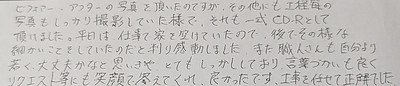 ビフォアー・アフターの写真を頂いたのですが、その他にも工程毎の
写真もしっかり撮影していた様で、それも一式CD-Rとして
頂けました。平日は、仕事で家を空けていたので、後でその様な
細かいことをしていたのだと判り感動しました。また職人さんも自分より
若く、大丈夫かなと思いきや とてもしっかりしており、言葉づかいも良く
リクエスト等にも笑顔で答えてくれ、良かったです。工事を任せて正解でした